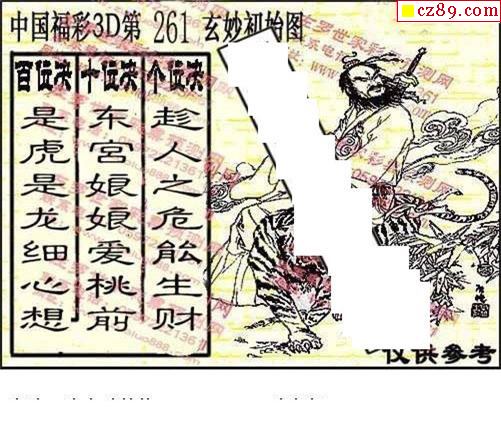 cz89.com
中国福彩3D第 261 玄妙初始图
百位决
是虎是龙细心想
十位决
东宫娘娘爱桃前
个位决
趁人之危能生财
仅供参考